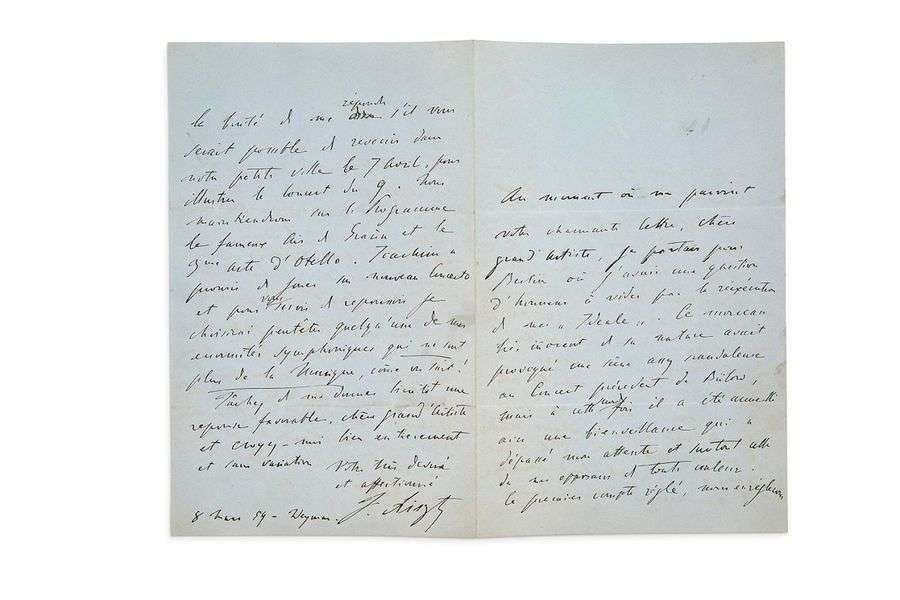 la bonté de me répondre s'il vous
serait possible de revenir dans
notre petite ville le 7 Avril, pour
illustrer le Concert du 9. Nous
maintiendrons sur le Programme
le fameux Air de et le
3me acte d'Otello. Joachim a
promis de jouer un nouveau Concerto
et pour vous servir de repoussoir je
choisirai peutêtre quelqu'une de mes
énormités symphoniques qui ne sont
plus de la Musique, come on sait!
Tâchez de me donner bientôt une
réponse favorable, chère grand'Artiste
et croyez-moi bien entièrement
et sans variation Votre très dévoué
et affectionné
8 Mars 59 – Weymar F. Liszt
Au moment où me parvint
votre charmante lettre, chère
grand'Artiste, je partais pour
Berlin où j'avais une question
d'honneur à vider par la réexécution
de mes „Ideale". Ce morceau
très innocent de sa nature avait
provoqué une scène assez scandaleuse
au Concert précédent de Bülow,
mais à cette fois il a été accueilli
avec une bienveillance qui a
dépassé mon attente et surtout celle
de mes opposans de toute couleur.
Ce premier compte réglé, nous en réglerons